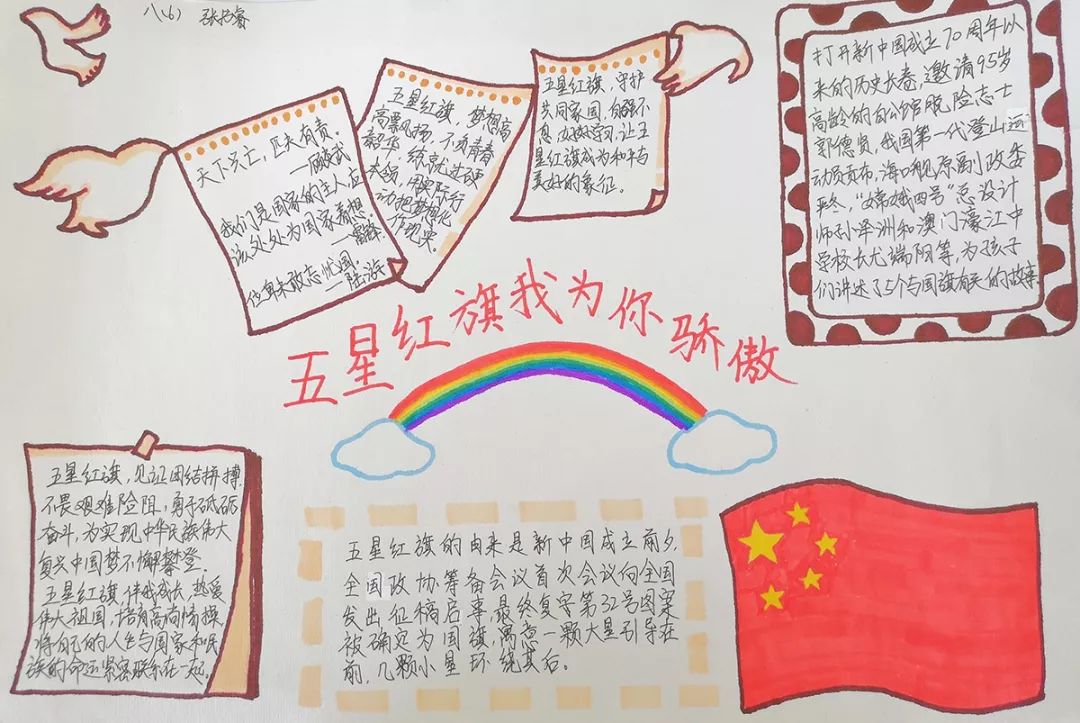 八(6) 张拓睿
天下兴亡,匹夫有责。
—顾炎武
我们是国家的主人,应
该处处为国家着想
—雷锋
位卑未敢忘忧国。
—陆游
五星红旗,梦想高
高飘扬,不负青春
韶华,练就过硬
本领,用实际行
动把梦想化
作现实。
五星红旗,守护
共同家园,自强不
息,让五
星红旗成为和平与
美好的象征。
打开新中国成立70周年以
来的历史长卷,邀请95岁
高龄的白公馆脱险志士
郭德贤,我国第一代登山运
动员贡布,海口舰原副政委
严冬,“嫦娥四号”总设计
师孙泽洲和澳门濠江中
学校长尤端阳等,为孩子
们讲述了5个与国旗有关的故事
五星红旗我为你骄傲
五星红旗,见证团结拼搏,
不畏艰难险阻,勇于砥砺
奋斗,为实现中华民族伟大
复兴中国梦不懈攀登。
五星红旗,伴我成长,热爱
伟大祖国,培育高尚情操,
将自己的人生与国家和民
族的命运紧密联系在一起。
五星红旗的由来是新中国成立前夕,
全国政协筹备会议首次会议向全国
发出,征稿启事,最终复字第32号图案
被确定为国旗,寓意一颗大星引导在
前,几颗小星环绕其后。